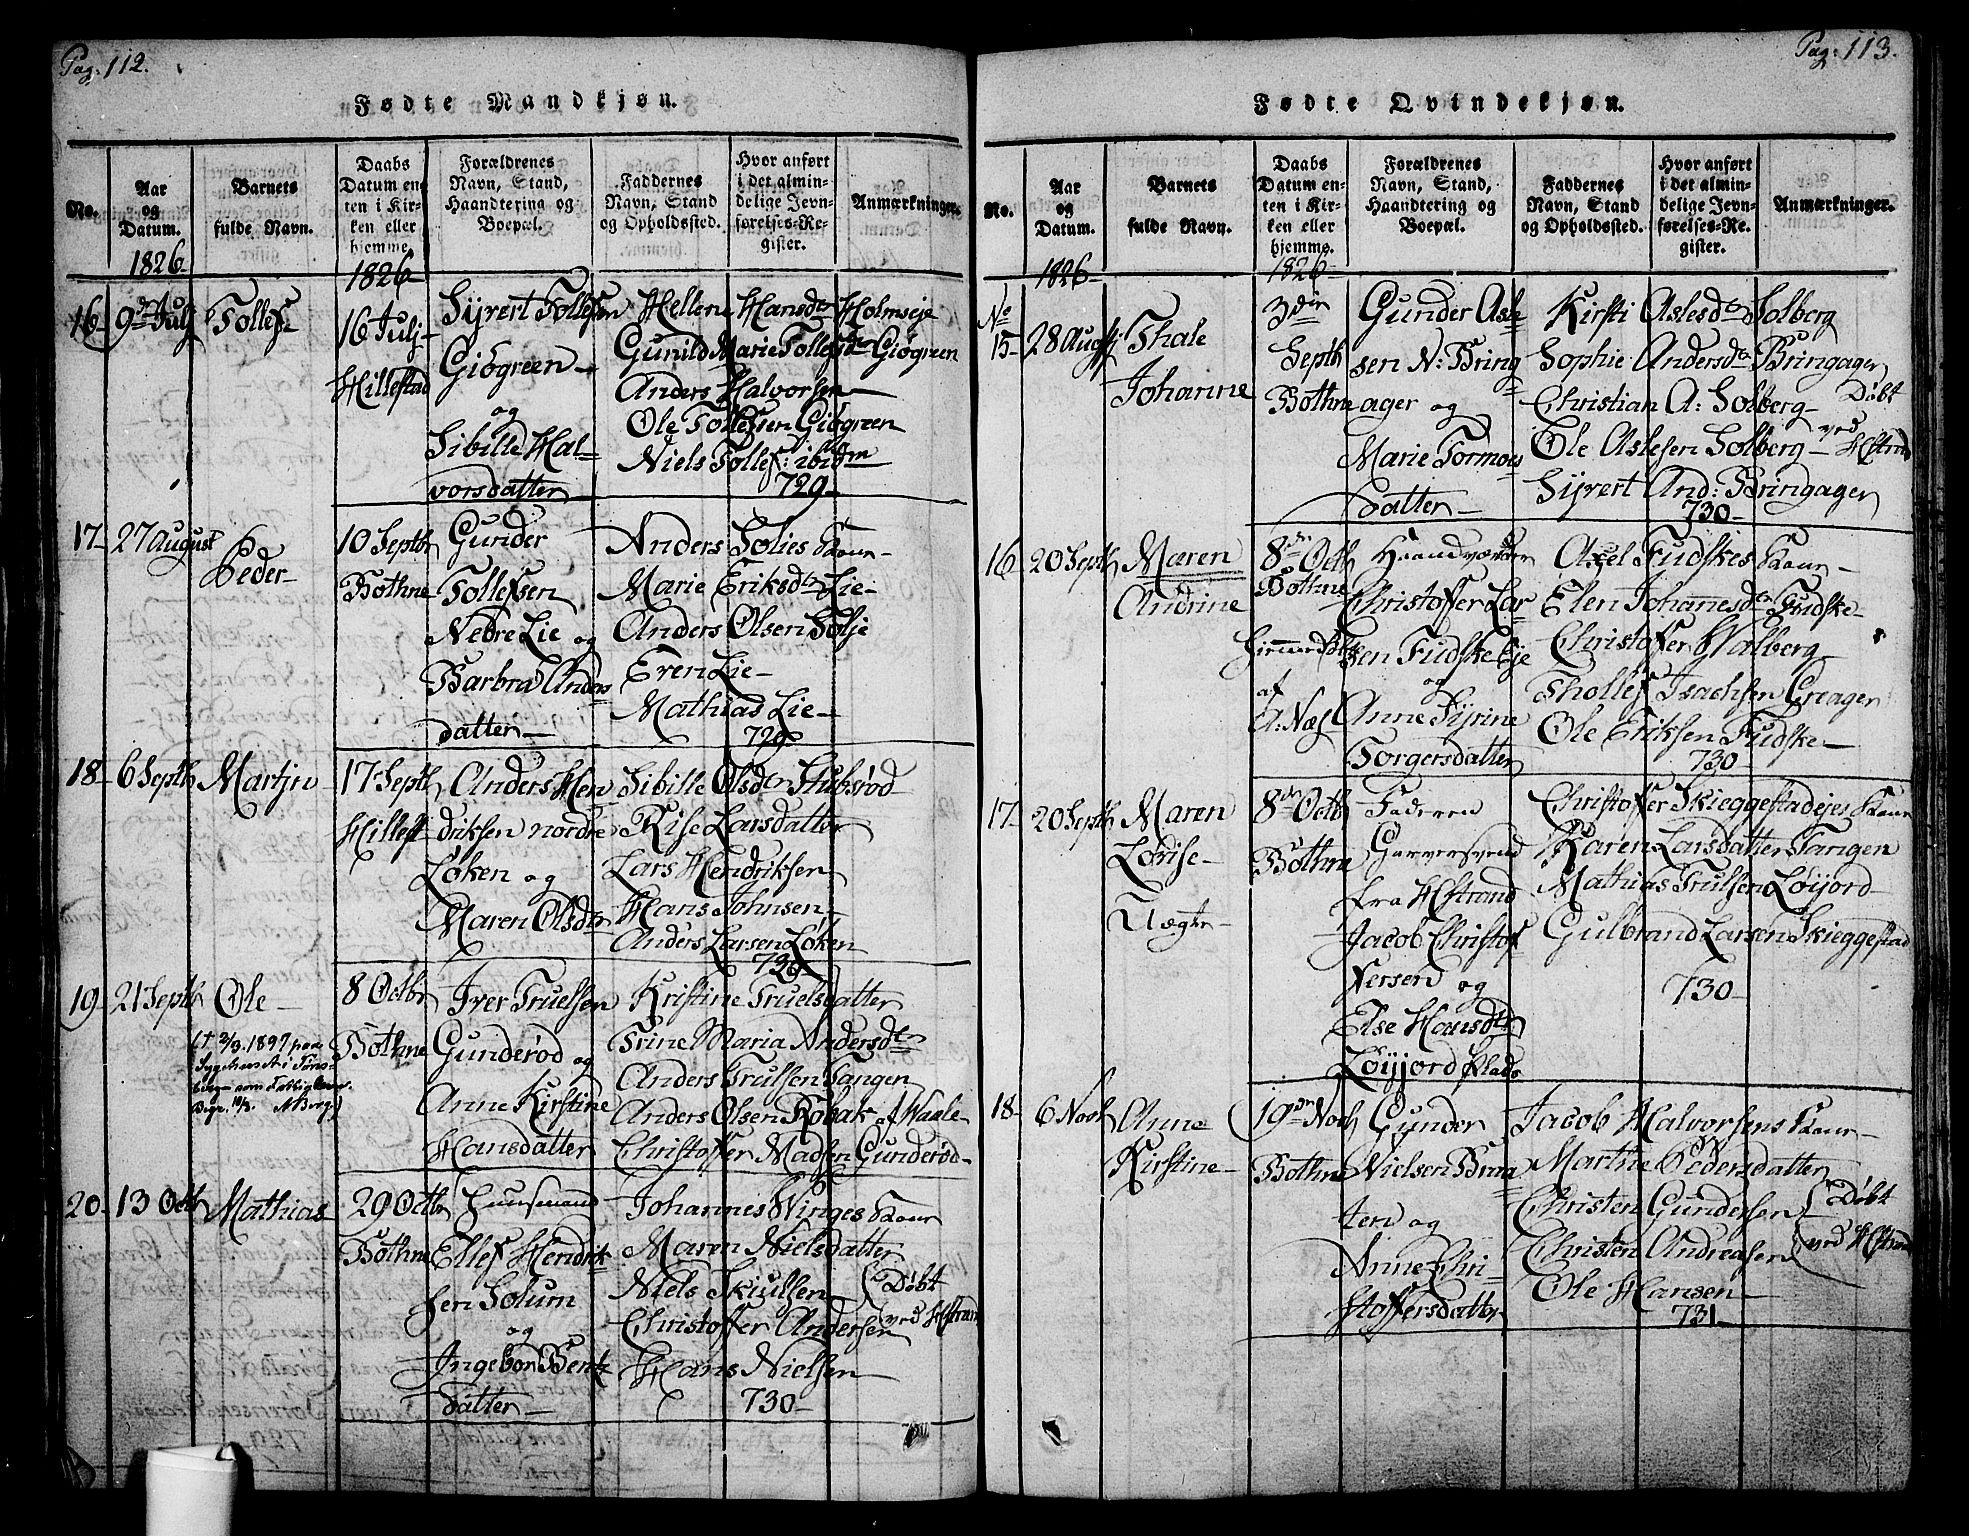 Pag: 112.
Fødte Mandkjøn.
No.
Aar og Datum.
Barnets fulde Navn.
Daabs Datum enten i Kirken eller hjemme.
Forældrenes Navn, Stand, Haandtering og Boepæl.
Faddernes Navn, Stand og Opholdssted.
Hvor anført i det almindelige Jevnførelses-Register.
Anmærkninger.
1826
1826
16
9d Julj
Tollef
16 Julj
Hillestad
Syvert Tollefsen
Giøgreen
og
Sibille Hal-
vorsdatter
Hellene Hansdr Holmseje
Gunild Marie Tollefsdr Giøgreen
Anders Halvorsen
Ole Tollefsen Giøgreen
Niels Tollefs: ibidm
729
17
27 August
Peder
10 Septbr
Bothne
Gunder
Tollefsen
Nedre Lie og
Barbra Anders
datter
Anders Solies Kone
Marie Eriksdtr Lie
Anders Olsen Solje
Even Lie
Mathias Lie
729
18
6 Septb
Martjn
17 Septb
Hillest
Anders Hen
driksen nordre
Løken og
Maren Olsdtr
Sibille Olsdtr Stubsrød
Rise Larsdatter
Lars Hendriksen
Hans Johnsen
Anders Larsen Løken
729
19
21 Septb
Ole
(† 2/3. 1897 paa
Sygehuset i Tøns-
berg som Fattiglem.
Begr. 10/3. A Berg)
8 Octbr
Bothne
Iver Truelsen
Gunderød og
Anne Kirstine
Hansdatter
Kristine Truelsdatter
Trine Maria Andersdtr
Anders Trulsen Tangen
Anders Olsen Kobak af Waale
Christoffer Madsen Gunderød
20
13 Octb
Mathias
29 Octbr
Bothne
Huusmand
Ellef Hendrik-
sen Solum
og
Ingebor Bent
datter
Johannes Winges Kone
Maren Nielsdatter
Niels Skiullsen
Christoffer Andersen
Hans Nielsen
730
Døbt
ved Hstrand
Pag: 113.
Fødte Qvindekjøn.
No.
Aar og Datum.
Barnets fulde Navn.
Daabs Datum enten i Kirken eller hjemme.
Forældrenes Navn, Stand, Haandtering og Boepæl.
Faddernes Navn, Stand og Opholdssted.
Hvor anført i det almindelige Jevnførelses-Register.
Anmærkninger.
1826
1826
No
15
28 Augst
Thale
Johanne
3die
Septb
Bothne
Gunder Asle
sen N: Bring
ager og
Marie Tormoes
datter
Kirsti Aslesdr Solberg
Sophie Andersdr Bringager
Christian A: Solberg
Ole Aslesen Solberg
Syvert And: Bringager
730
Døbt
ved Hstrand
16
20 Septb
Maren
Andrine
8de Octb
Bothne
Hjemmedøbt
af
A: Næs
Haandværker
Christoffer Lar
sen Fudske Eje
og
Anne Syrine
Torgersdatter
Axel Fudskes Kone
Elen Johannesdr Fudske
Christoffer Halberg
Thollef Isachsen Greager
Ole Eriksen Fudske
730
17
20 Septb
Maren
Lovise
Uægte
8de Octb
Bothne
Faderen
Garversvend
fra Hstrand
Jacob Christof
fersen og
Else Hansdtr
Løyjord Plads
Christoffer Skieggestadejes Kone
Karen Larsdatter Tangen
Mathias Trulsen Løyjord
Gulbrand Larsen Skieggestad
730
18
6 Novb
Anne
Kirstine
19de Novb
Bothne
Gunder
Nielsen Braa
ten og
Anne Chri-
stoffersdatter
Jacob Halvorsens Kone
Marthe Pedersdatter
Christen Gundersen
Christen Andreasen
Ole Hansen
731
Døbt
ved Hstrand